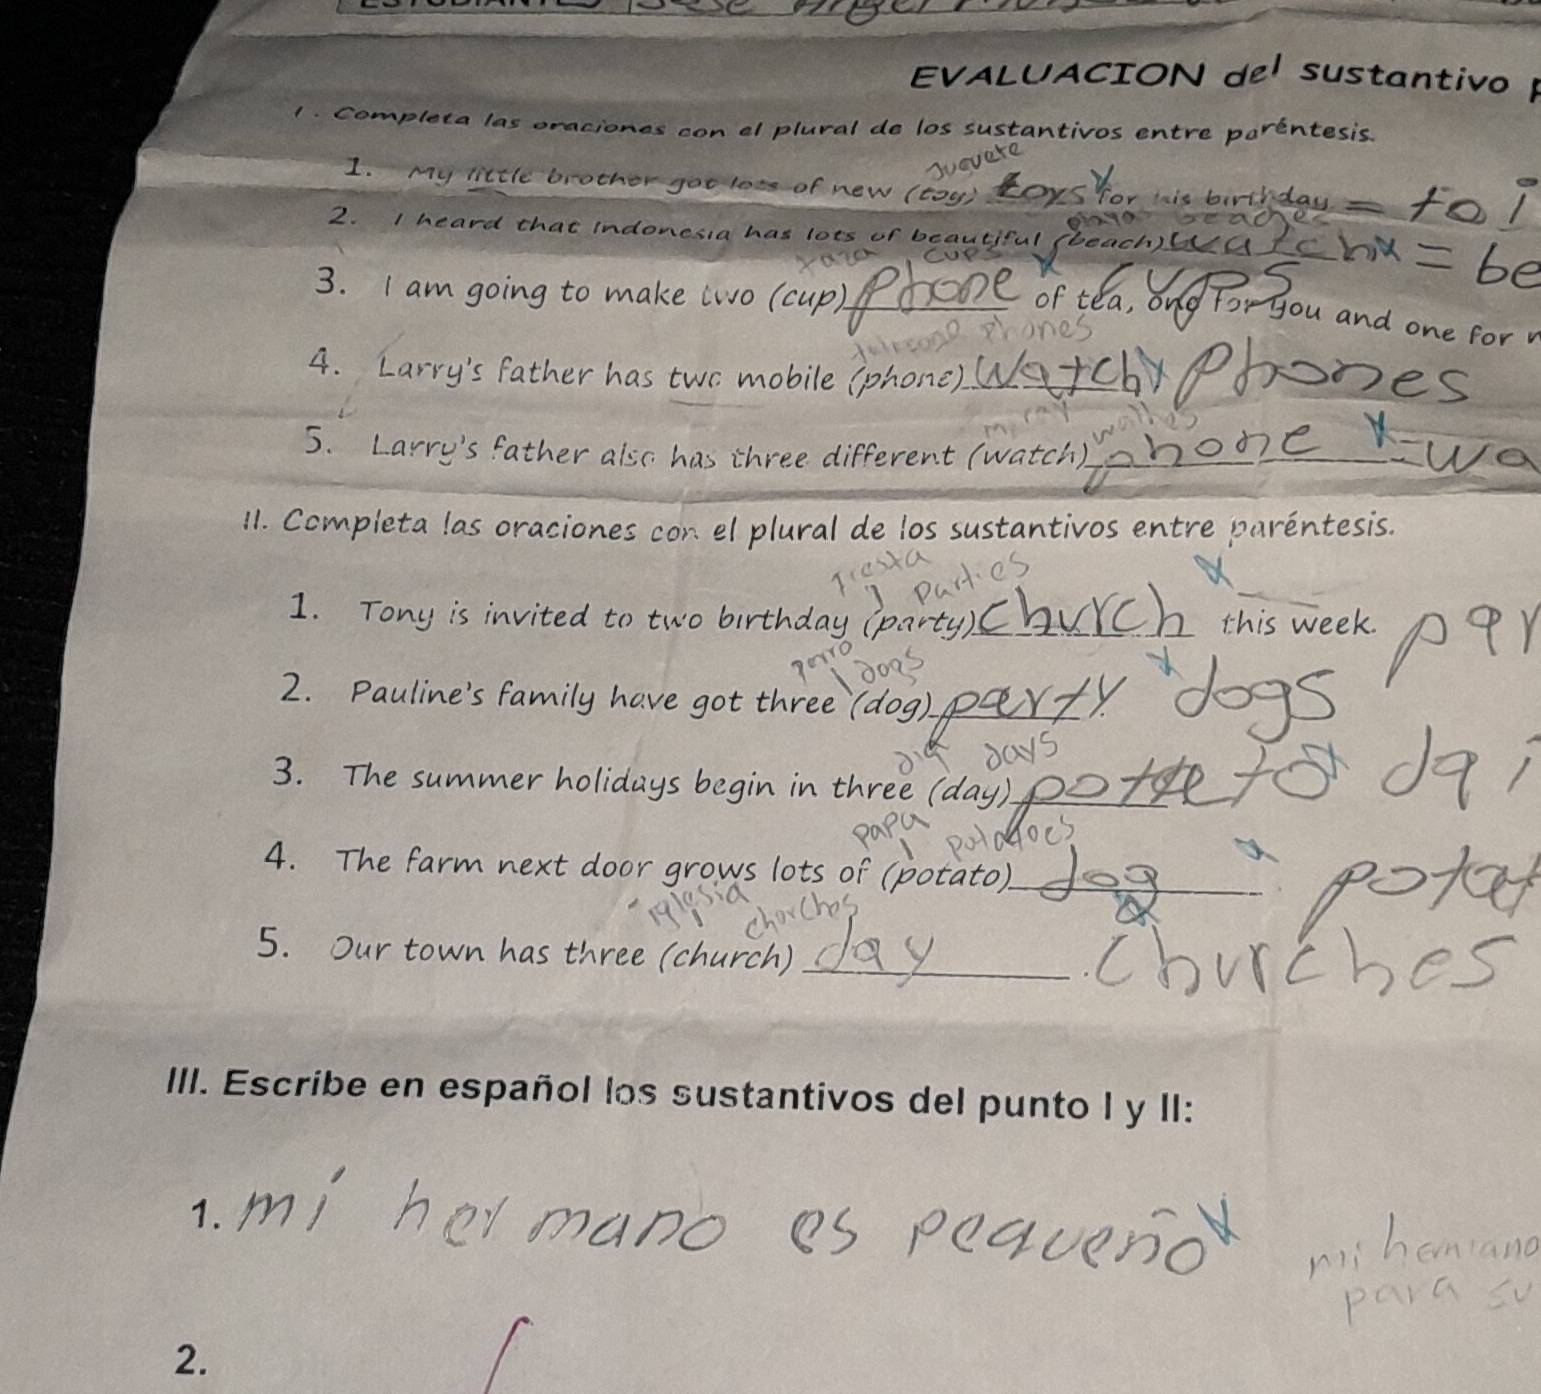 EVALUACION del sustantivo
1. Completa las oraciones con el plural de los sustantivos entre paréntesis.
Juguete
1. My little brother got lots of new (toy) toys for his birthday = toi
beaches
2. I heard that Indonesia has lots of beautiful (beach) watch = be
taza cups
3. I am going to make two (cup) phone of tea, one for you and one for
cups
phones
4. Larry's father has two mobile (phone) watch phones
5. Larry's father also has three different (watch) phone = wa
II. Completa las oraciones con el plural de los sustantivos entre paréntesis.
parties
1. Tony is invited to two birthday (party) church this week. par
perro dogs
2. Pauline's family have got three (dog) party. dogs
dia days
3. The summer holidays begin in three (day) dai
papa potatoes
4. The farm next door grows lots of (potato) dog. potat
iglesia churches
5. Our town has three (church) day. churches
III. Escribe en español los sustantivos del punto I y II:
1. mi hermano es pequeño
mi hermano
para su
2.